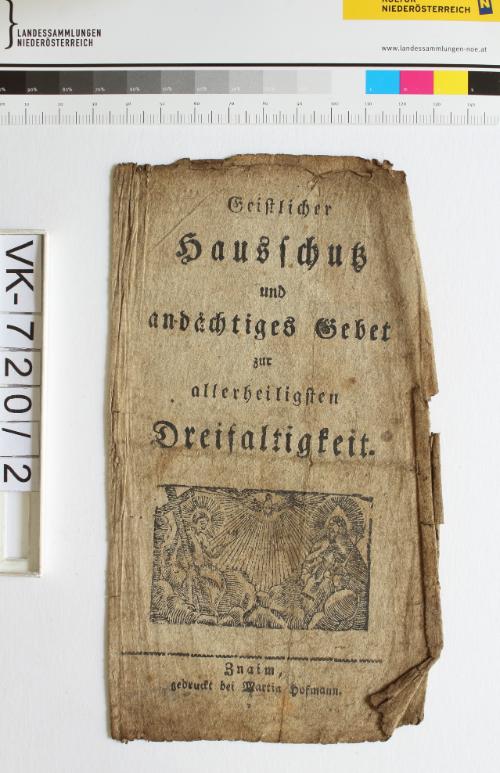 LANDESSAMMLUNGEN
NIEDERÖSTERREICH
KULTUR
NIEDERÖSTERREICH
www.landessammlungen-noe.at
VK-720/2
Geistlicher
Hausschutz
und
andächtiges Gebet
zur
allerheiligsten
Dreifaltigkeit.
Znaim,
gedruckt bei Martin Hofmann.